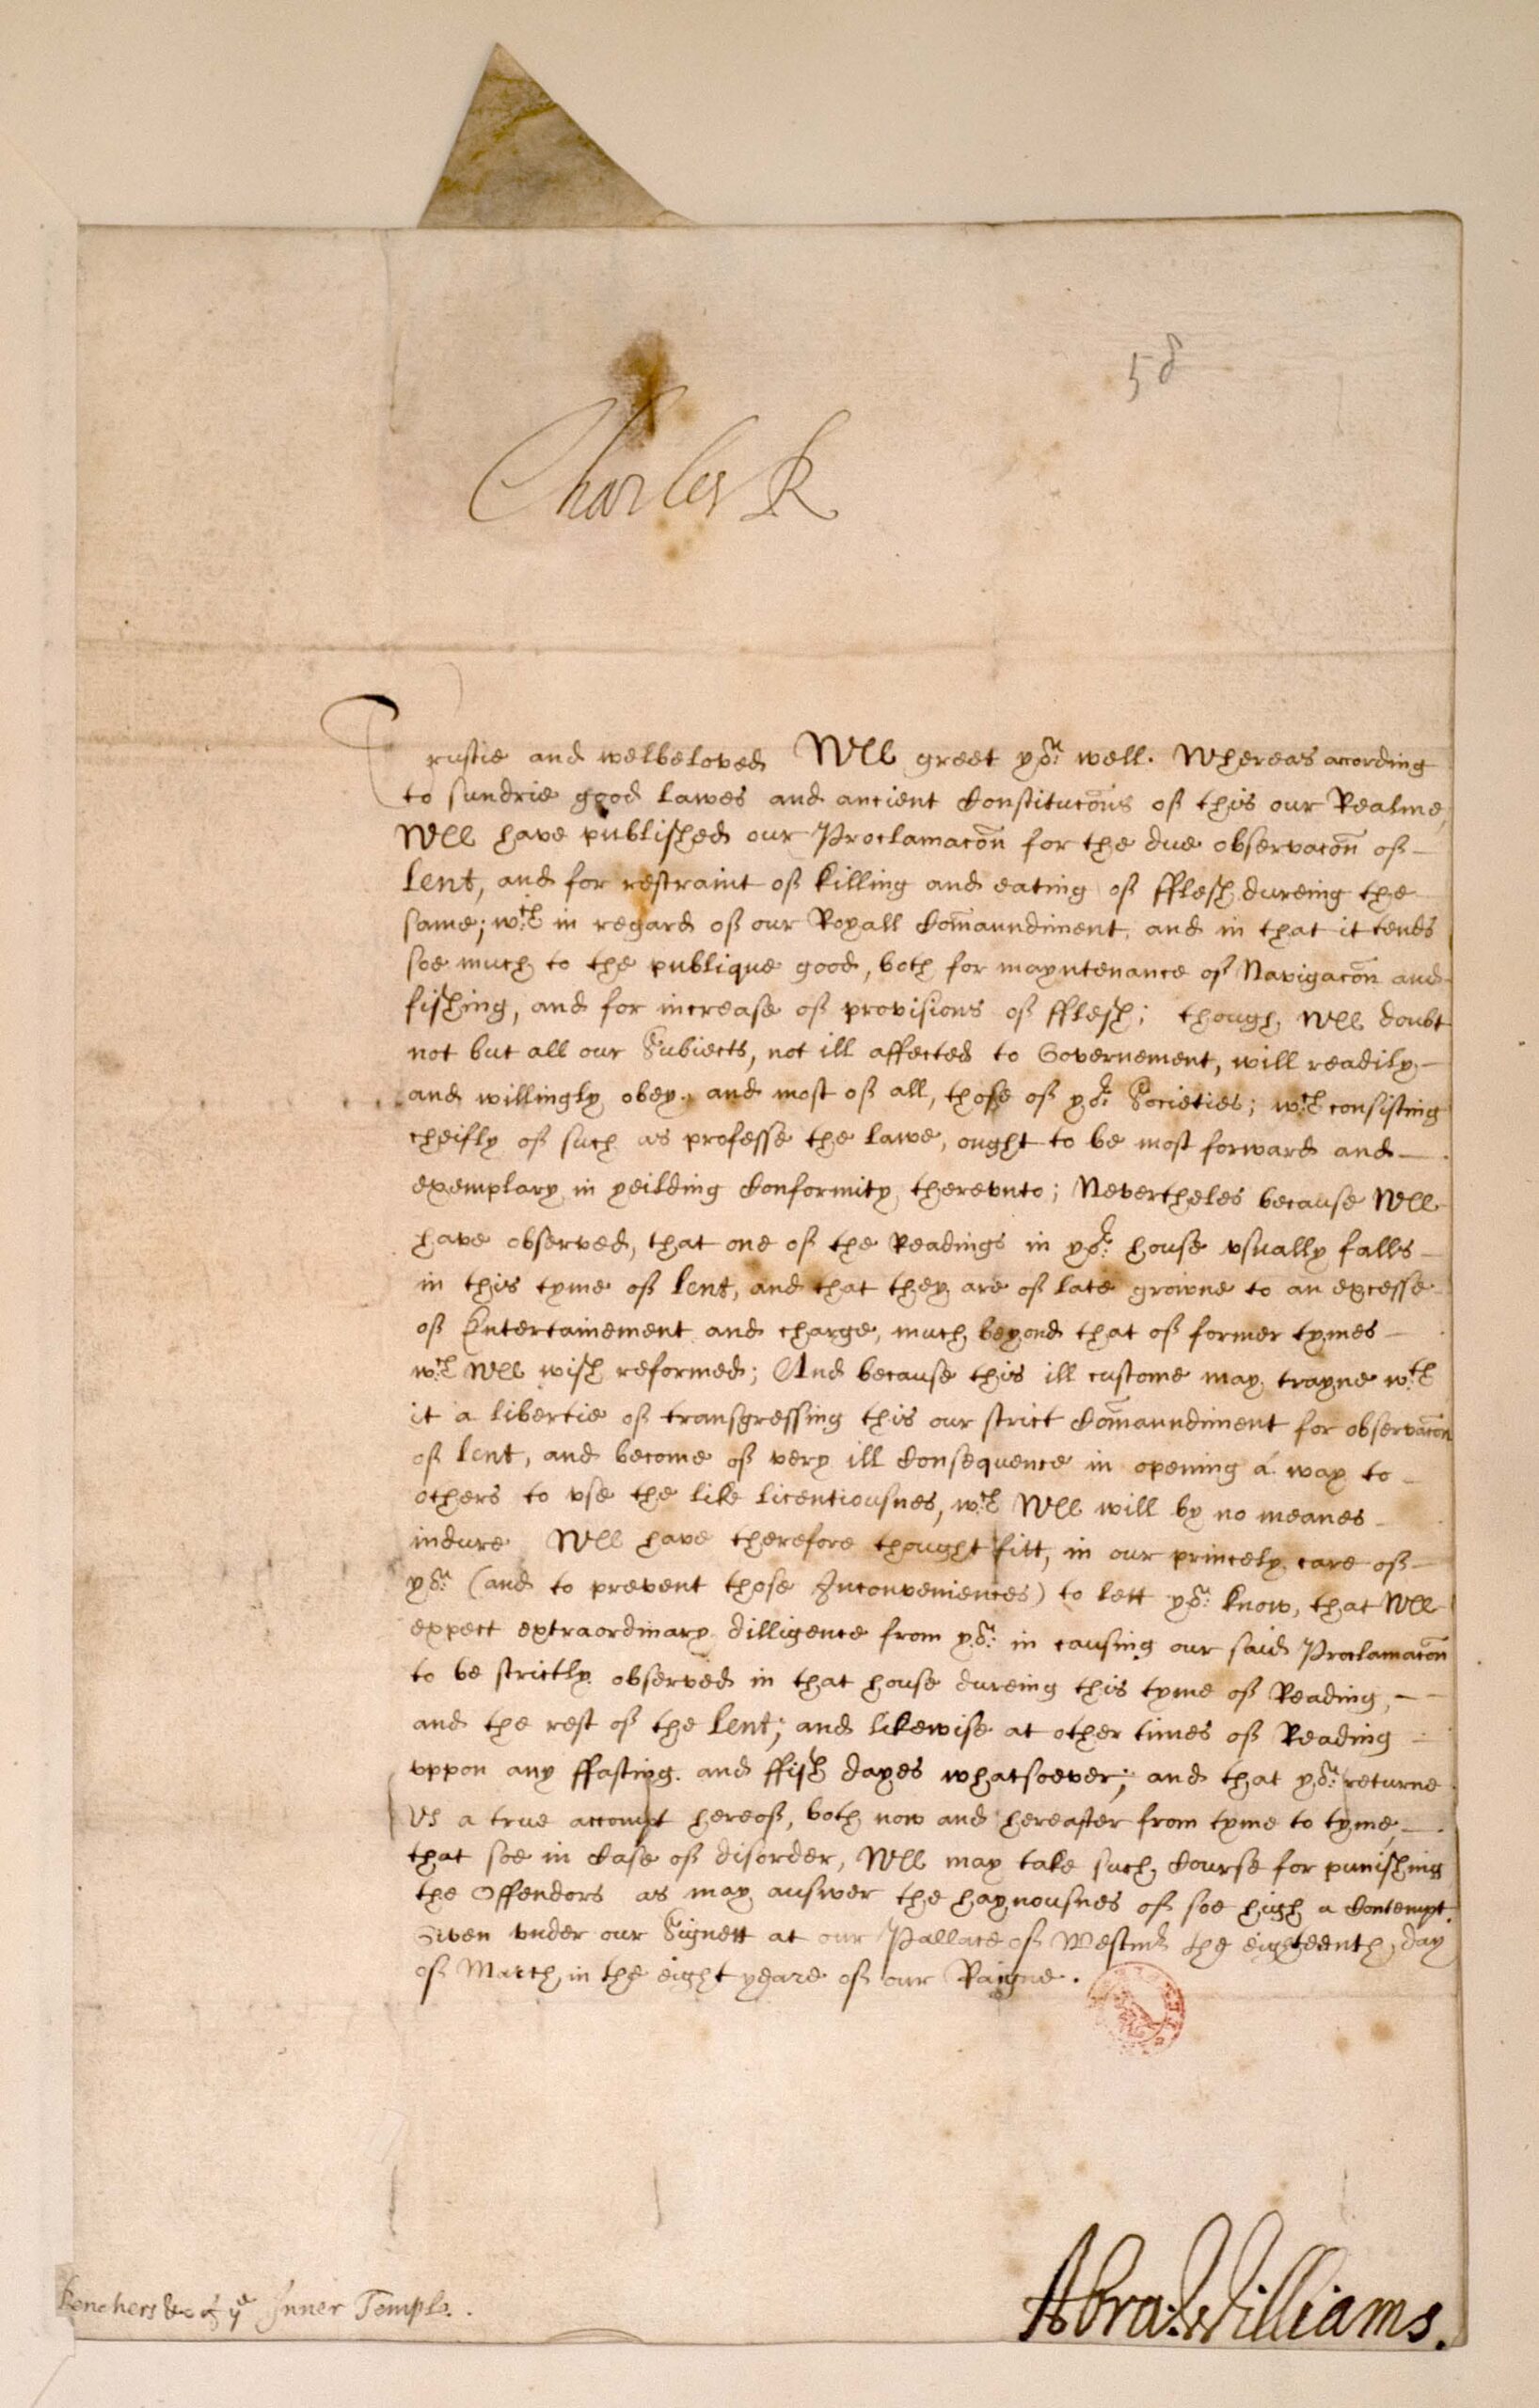 58
Charles R
Trustie and welbeloved WEE greet yoᵘ: well. Whereas according
to sundrie good lawes and ancient Constitucõns of this our Realme,
WEE have published our Proclamacõn for the due observacõn of
Lent, and for restraint of killing and eating of fflesh dureing the
same; wᶜʰ in regard of our Royall Com̃aundiment, and in that it tends
soe much to the publique good, both for mayntenance of Navigacõn and
fishing, and for increase of provisions of fflesh; though WEE doubt
not but all our Subiects, not ill affected to Governement, will readily
and willingly obey, and most of all, those of yoʳ: Societies; wᶜʰ consisting
cheifly of such as professe the lawe, ought to be most forward and
exemplary in yeilding Conformity therevnto; Nevertheles because WEE
have observed, that one of the Readings in yoʳ: house vsually falls
in this tyme of Lent, and that they are of late growne to an excesse
of Entertainement and charge, much beyond that of former tymes
wᶜʰ WEE wish reformed; And because this ill custome may trayne wᵗʰ
it a libertie of transgressing this our strict Com̃aundiment for observacõn
of Lent, and become of very ill Consequence in opening a way to
others to vse the like licentiousnes, wᶜʰ WEE will by no meanes
indure WEE have therefore thought fitt, in our princely care of
yoᵘ: (and to prevent those Inconveniences) to lett yoᵘ: know, that WEE
expect extraordinary dilligence from yoᵘ: in causing our said Proclamacõn
to be strictly observed in that house dureing this tyme of Reading,
and the rest of the Lent; and likewise at other times of Reading
vppon any ffasting and ffish dayes whatsoever; and that yoᵘ: returne
vs a true accompt hereof, both now and hereafter from tyme to tyme,
that soe in Case of disorder, WEE may take such Course for punishing
the Offendors as may answer the haynousnes of soe high a Contempt.
Given vnder our Signett at our Pallace of Westmʳ the eighteenth day
of March, in the eight yeare of our Raigne.
Benchers &c of yᵉ Inner Temple.
Abra: Williams.